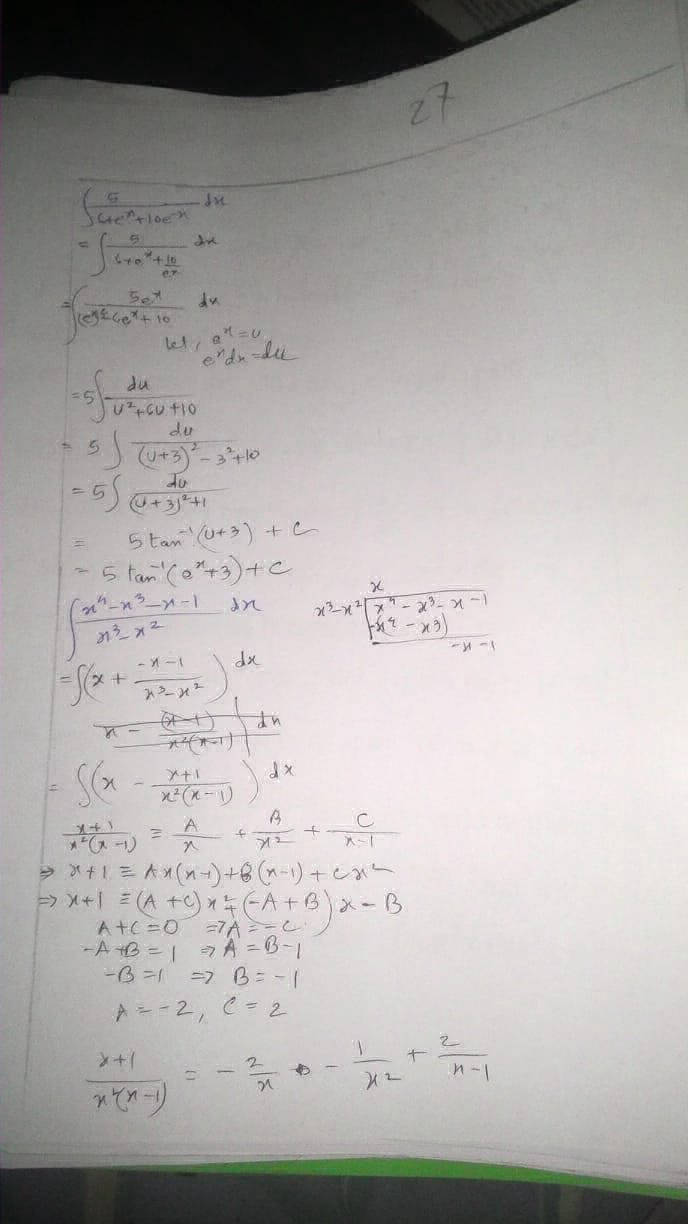 27
∫ 5/(6+e^x+10e^-x) dx
= ∫ 5/(6+e^x+10/e^x) dx
= ∫ 5e^x/((e^x)^2+6e^x+10) dx
let, e^x = u
e^x dx = du
= 5∫ du/(u^2+6u+10)
= 5∫ du/((u+3)^2-3^2+10)
= 5∫ du/((u+3)^2+1)
= 5 tan^-1(u+3) + C
= 5 tan^-1(e^x+3) + C
∫ (x^4-x^3-x-1)/(x^3-x^2) dx
x
x^3-x^2 | x^4 - x^3 - x - 1
-(x^4 - x^3)
-x-1
= ∫(x + (-x-1)/(x^3-x^2)) dx
= ∫(x - (x+1)/(x^2(x-1))) dx
(x+1)/(x^2(x-1)) ≡ A/x + B/x^2 + C/(x-1)
⇒ x+1 ≡ Ax(x-1)+B(x-1)+Cx^2
⇒ x+1 ≡ (A+C)x^2+(-A+B)x-B
A+C=0 ⇒ A=-C
-A+B=1 ⇒ A=B-1
-B=1 ⇒ B=-1
A=-2, C=2
(x+1)/(x^2(x-1)) = -2/x - 1/x^2 + 2/(x-1)